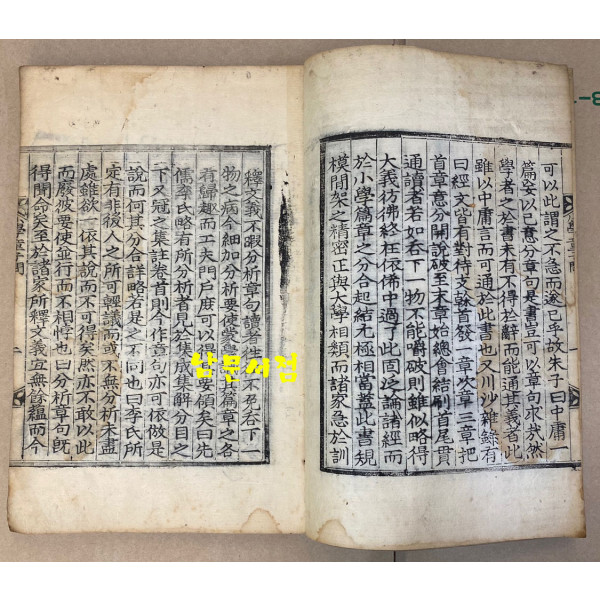 可以此謂之不急而遂已乎故朱子曰中庸一
篇妄以已意分章句是書豈可以章句求㦲然
學者之於書未有不得於辭而能通其義者此
雖以中庸言而可通於此書也又川沙雜錄有
曰經文皆有對待支幹首發一章次章三章把
首章意分開說破至末章始總會結刷首尾貫
通讀者若如呑下一物不能嚼破則雖似略得
大義彷彿終在依俙中過了此固泛論諸經而
於小學篇章之分合起結尤極相當蓋此書規
模間架之精密正與大學相類而諸家急於訓
釋文義不暇分析章句讀者往不免呑下一
物之病今細加分析要使篇章之各
有歸趣而工夫門戶庶可以要領矣曰先
儒李氏略有所分析者見於集成集解分目之
下又冠之集註卷首則今作章句亦可依倣是
說而何其分合詳略若是之不同也曰李氏所
定有非後人之所可輕議而或不無分析未盡
處雖欲一依其說而不可得矣然亦不敢以此
而廢彼要使並行而不相悖也曰分析章句旣
得聞命矣至於諸家所釋文義宜無餘蘊而今
남문서점